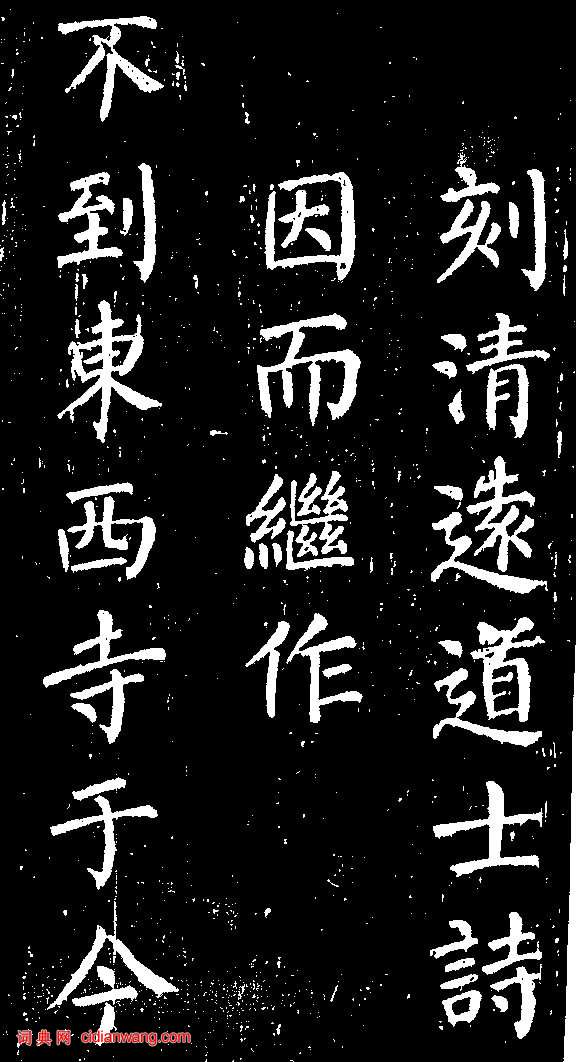 刻清遠道士詩
因而繼作
不到東西寺于今
词典网 cidianwang.com